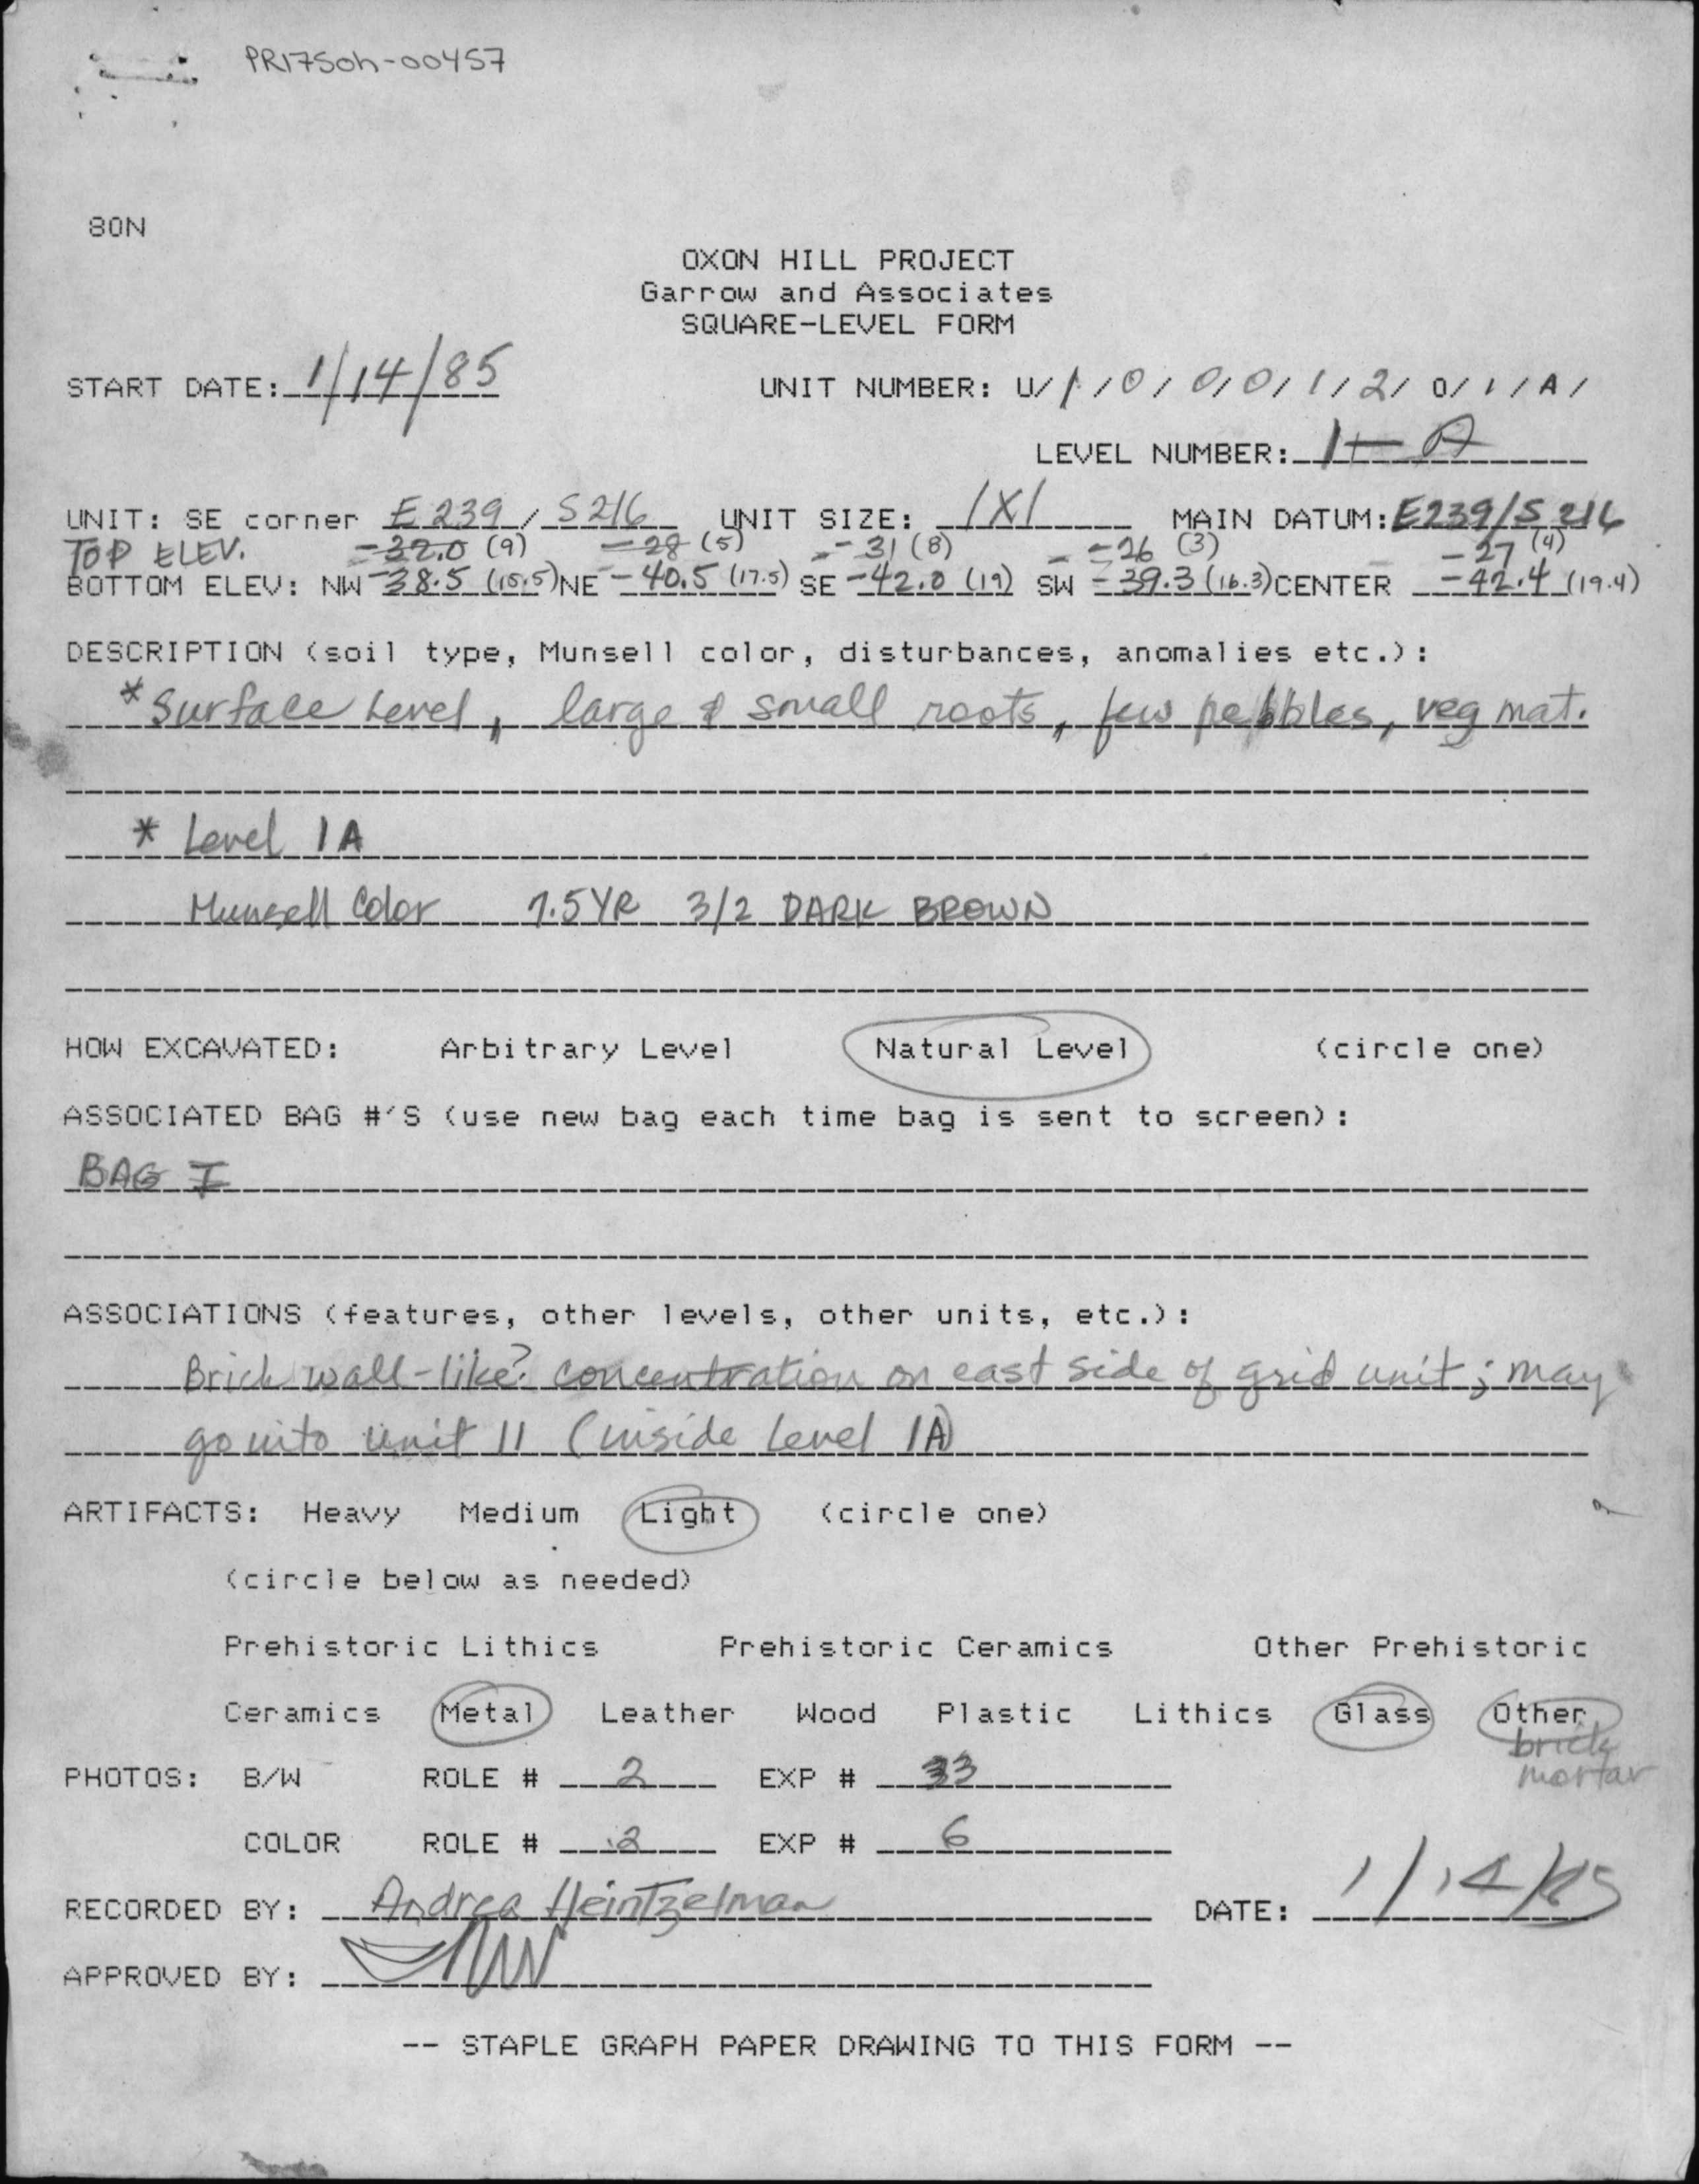 PR175oh-00457
80N
OXON HILL PROJECT
Garrow and Associates
SQUARE-LEVEL FORM
START DATE: 1/14/85 UNIT NUMBER: U/1/0/0/0/1/2/0/1/A/
LEVEL NUMBER: 1-A
UNIT: SE corner E 239 / S 216 UNIT SIZE: 1X1 MAIN DATUM: E239/S 216
TOP ELEV. -32.0 (9) -28 (5) -31 (8) -26 (3) -27 (4)
BOTTOM ELEV: NW -38.5 (15.5) NE -40.5 (17.5) SE -42.0 (19) SW -39.3 (16.3) CENTER -42.4 (19.4)
DESCRIPTION (soil type, Munsell color, disturbances, anomalies etc.):
* Surface Level, large & small roots, few pebbles, veg mat.
* Level 1A
Munsell Color 7.5YR 3/2 DARK BROWN
HOW EXCAVATED: Arbitrary Level Natural Level (circle one)
ASSOCIATED BAG #'S (use new bag each time bag is sent to screen):
BAG I
ASSOCIATIONS (features, other levels, other units, etc.):
Brick wall-like? concentration on east side of grid unit; may
go into unit 11 (inside Level 1A)
ARTIFACTS: Heavy Medium Light (circle one)
(circle below as needed)
Prehistoric Lithics Prehistoric Ceramics Other Prehistoric
Ceramics Metal Leather Wood Plastic Lithics Glass Other
brick
mortar
PHOTOS: B/W ROLE # 2 EXP # 33
COLOR ROLE # 2 EXP # 6
RECORDED BY: Andrea Heintzelman DATE: 1/14/85
APPROVED BY:
-- STAPLE GRAPH PAPER DRAWING TO THIS FORM --